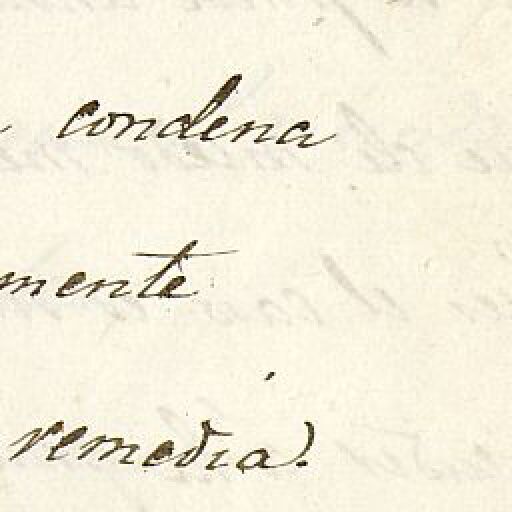 condena
mente
remedia!